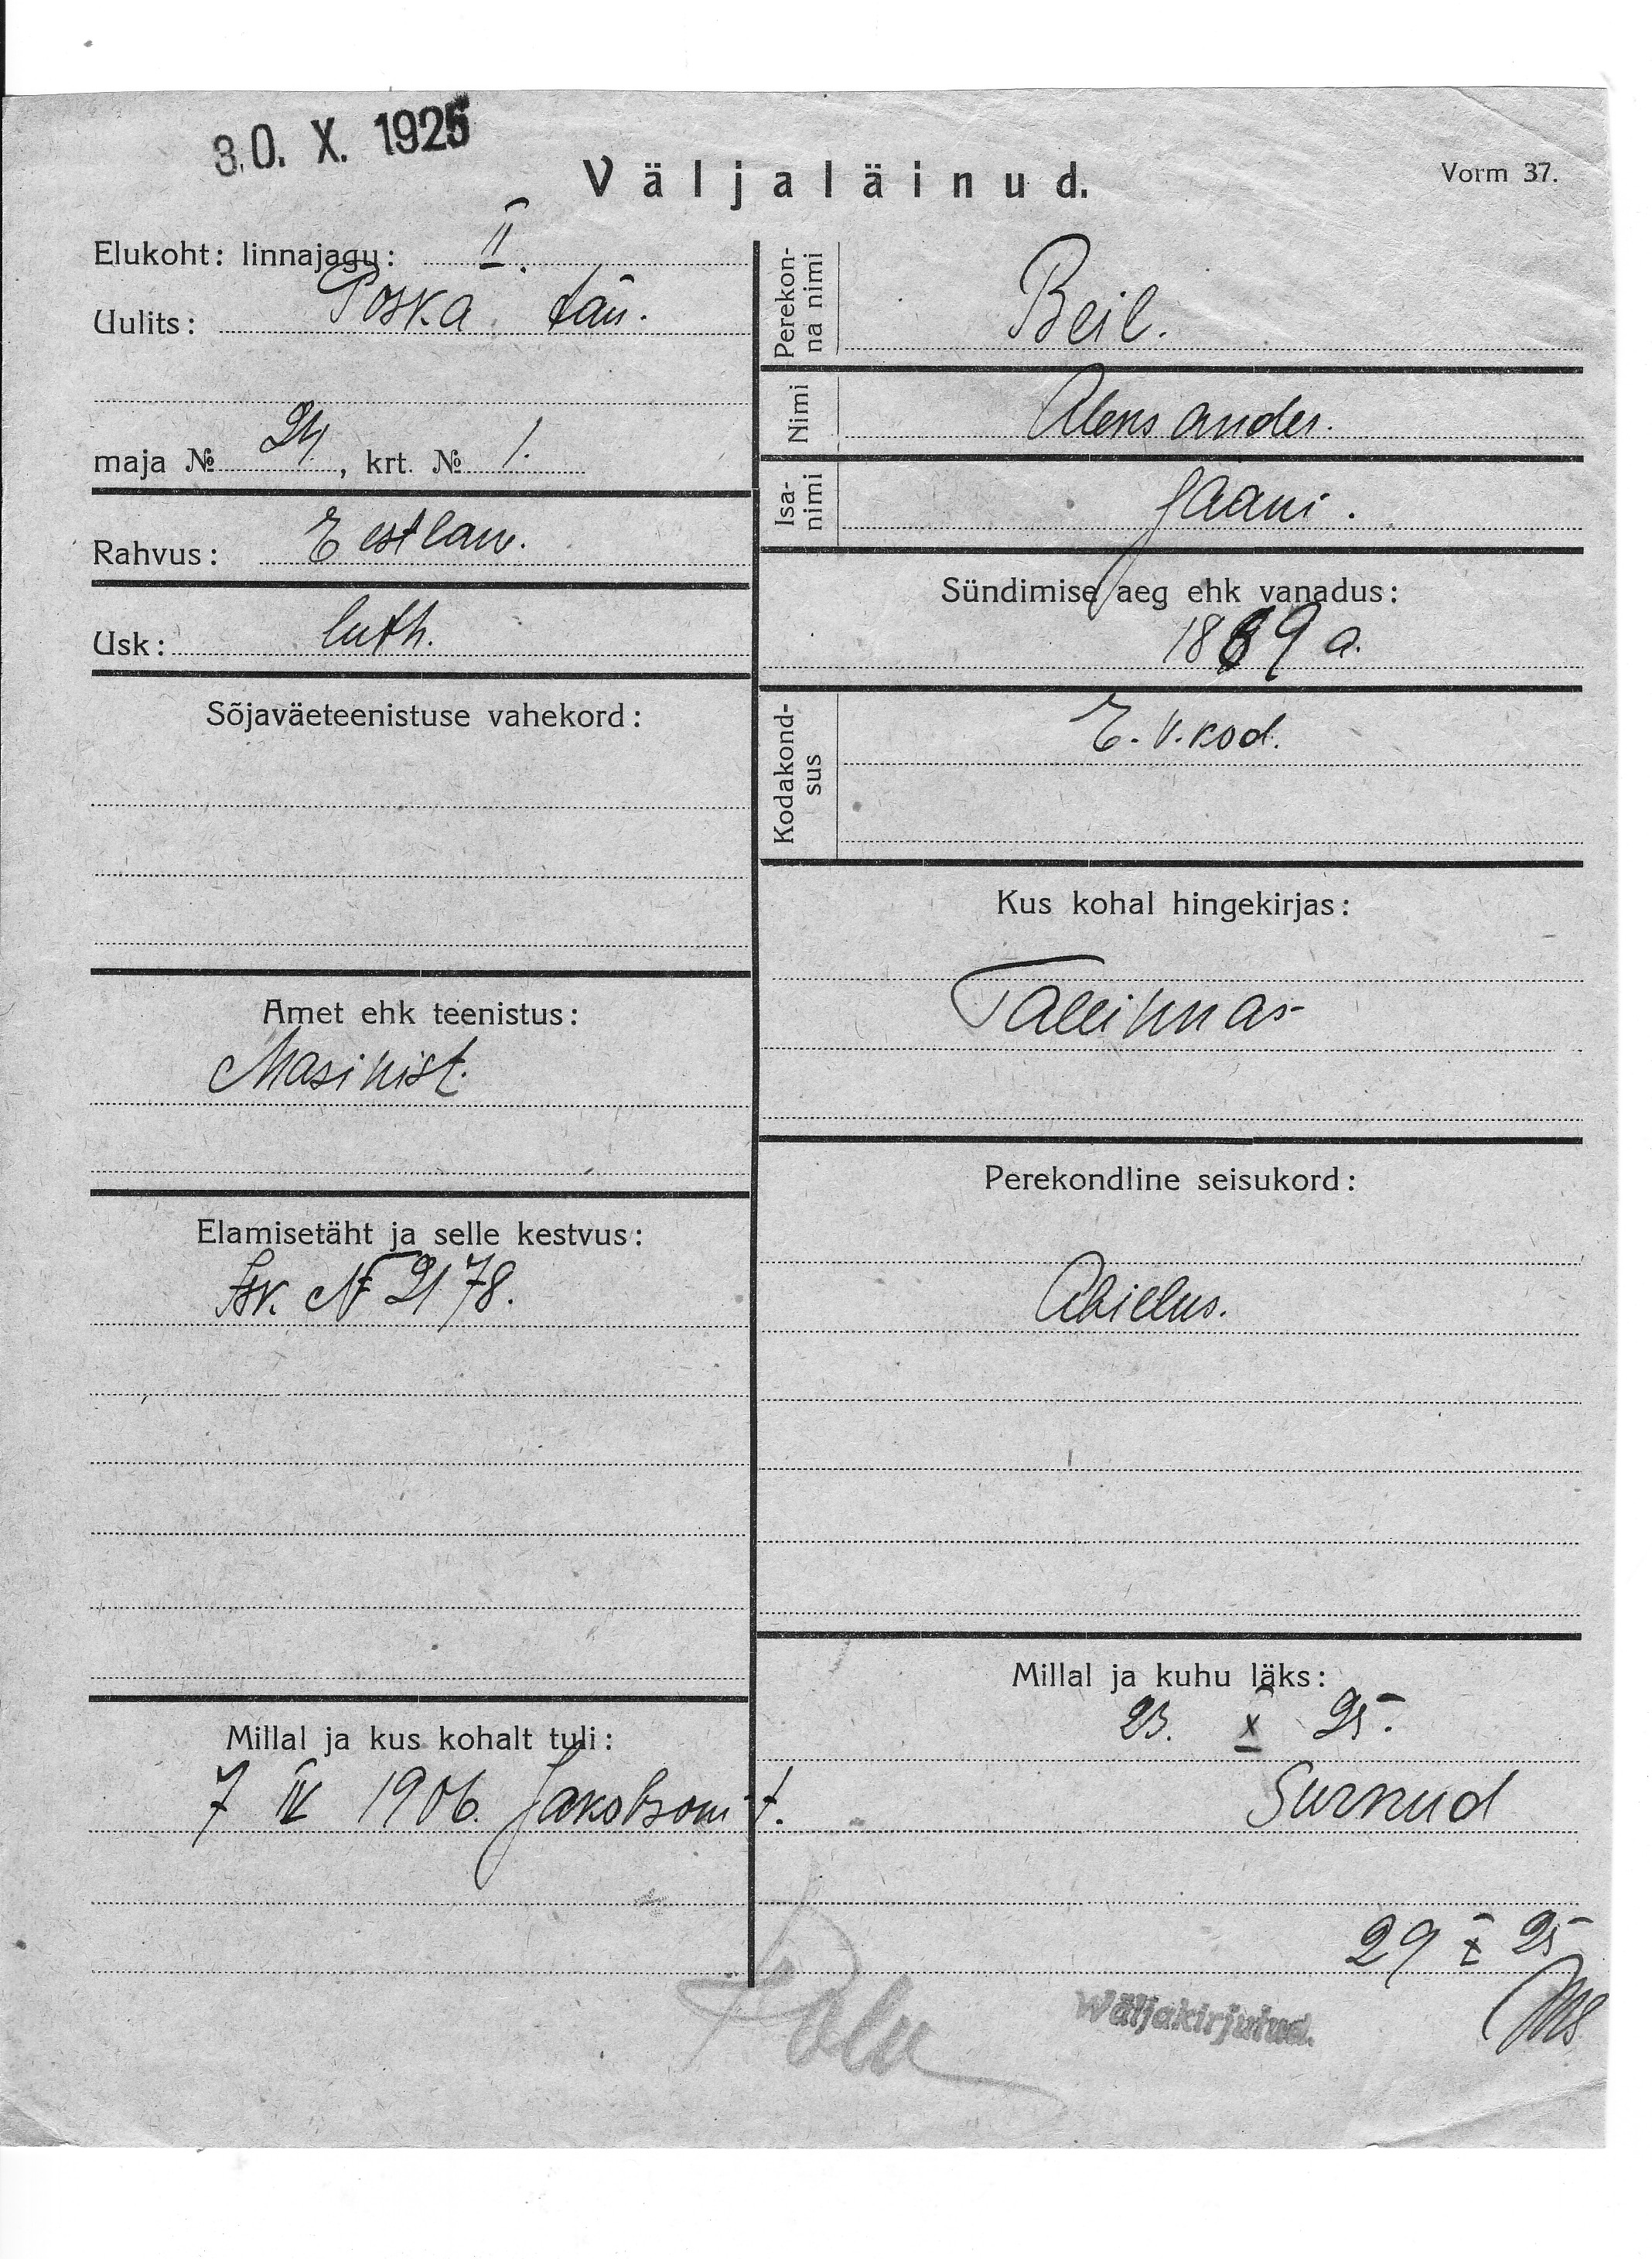 30. X. 1925
Väljaläinud.
Vorm 37.
Elukoht: linnajagu: II.
Uulits: Poska tän.
maja № 24, krt. № 1.
Rahvus: Eestlan.
Usk: luth.
Sõjaväeteenistuse vahekord:
Amet ehk teenistus:
Masinist.
Elamisetäht ja selle kestvus:
Isk. N 2178.
Millal ja kus kohalt tuli:
7 IV 1906. Jakobsoni t.
Perekon-
na nimi
Beil.
Nimi
Aleksander.
Isa-
nimi
Jaani.
Sündimise aeg ehk vanadus:
1869 a.
Kodakond-
sus
E. V. kod.
Kus kohal hingekirjas:
Tallinnas
Perekondline seisukord:
Abielus.
Millal ja kuhu läks:
23. X 25.
Surnud
29 X 25
Wäljakirjutud.